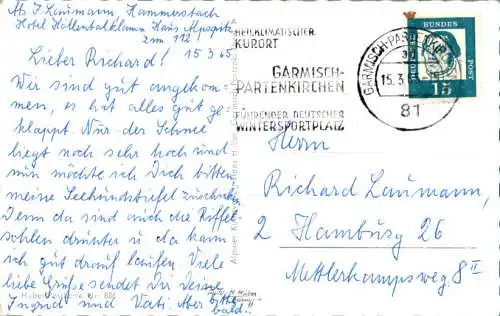 Abs I. Laumann Hammersbach
Hotel Höllentalklamm Haus Alpspitz
Zim 112
15 3 65
Lieber Richard!
Wir sind gut angekom-
men, es hat alles gut ge-
klappt. Nur der Schnee
liegt noch sehr hoch und
nun möchte ich Dich bitten
meine Seehundstiefel zuschicken
Denn da sind auch die Riffel-
sohlen drunter u da kann
ich gut drauf laufen. Viele
liebe Grüße sendet Dir Deine
Ingrid und Vati. Aber bitte
bald!!
HEILKLIMATISCHER
KURORT
GARMISCH-
PARTENKIRCHEN
FÜHRENDER DEUTSCHER
WINTERSPORTPLATZ
GARMISCH-PARTENKIRCHEN
15.3.
81
DEUTSCHE
BUNDES
POST
15
Herrn
Richard Laumann,
2 Hamburg 26
Mettlerkampsweg 8 II